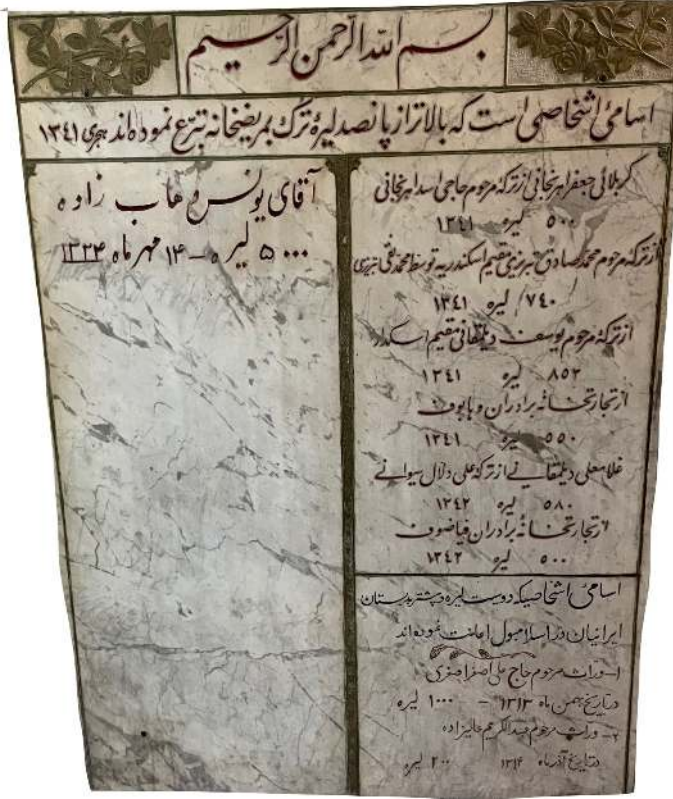 بسم الله الرحمن الرحیم
اسامئ اشخاصی است که بالاتر از پانصد لیرهٔ ترک بمریضخانه تبرّع نموده‌اند هجری ۱۳٤۱
کربلائی جعفر اهرنجانی از ترکهٔ مرحوم حاجی اسد اهرنجانی
۵۰۰ لیره ۱۳٤۱
از ترکهٔ مرحوم محمد صادق تبریزی مقیم اسکندریه توسط محمد تقی تبریزی
۷٤۰ لیره ۱۳٤۱
از ترکهٔ مرحوم یوسف دیلمقانی مقیم اسکدار
۸۵۲ لیره ۱۳٤۱
از تجارتخانهٔ برادران وهابوف
۵۵۰ لیره ۱۳٤۱
غلامعلی دیلمقانے از ترکهٔ علی دلال سیوانے
۵۸۰ لیره ۱۳٤۲
از تجارتخانهٔ برادران فیاضوف
۵۰۰ لیره ۱۳٤۲
اسامئ اشخاصیکه دوست لیره و بیشتر بمریضخانهٔ
ایرانیان در اسلامبول اعانت نموده‌اند
۱- وراث مرحوم حاج علی اصغر اصغری
در تاریخ بهمن ماه ۱۳۱۳ - ۱۰۰۰ لیره
۲- وراث مرحوم عبدالکریم عالیزاده
در تاریخ آذرماه ۱۳۱۴ ۲۰۰ لیره
آقای یونس وهاب زاده
۵۰۰۰ لیره - ۱۴ مهر ماه ۱۳۲۴